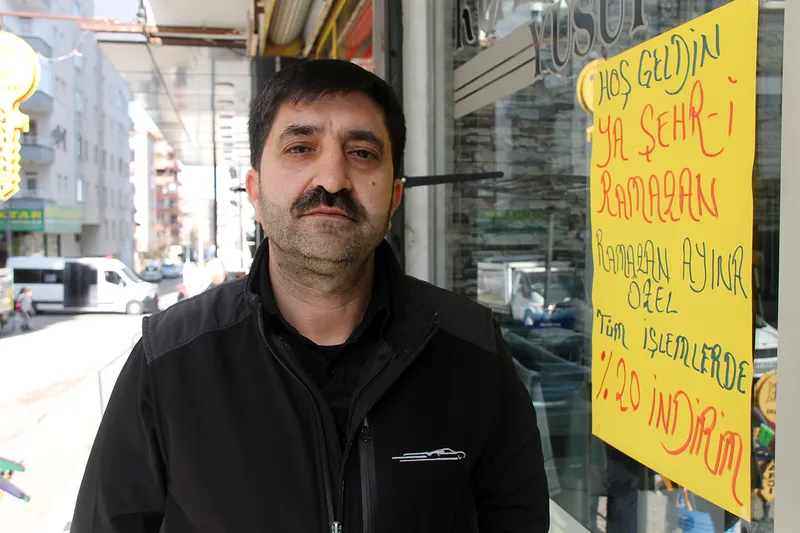 YUSUF
HOŞ GELDİN
YA ŞEHR-İ
RAMAZAN
RAMAZAN AYINA
ÖZEL
TÜM İŞLEMLERDE
%20 İNDİRİM